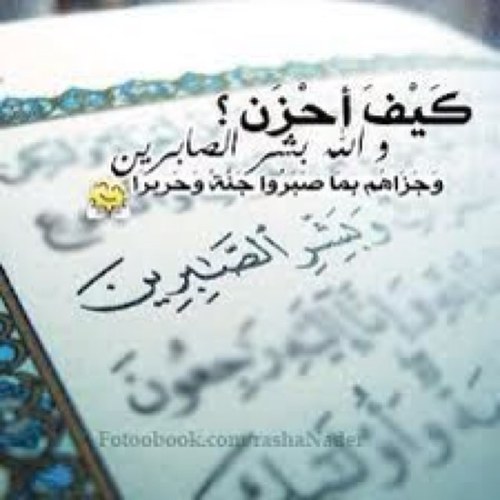 كَيْفَ أحْزَن ؟
و الله بشر الصابرين
وَجَزَاهُم بِمَا صَبَرُوا جَنَّة وَحَرِيرا
وَبَشِّرِ ٱلصَّٰبِرِينَ
رَٰجِعُونَ
Fotoobook.com/rashaNader